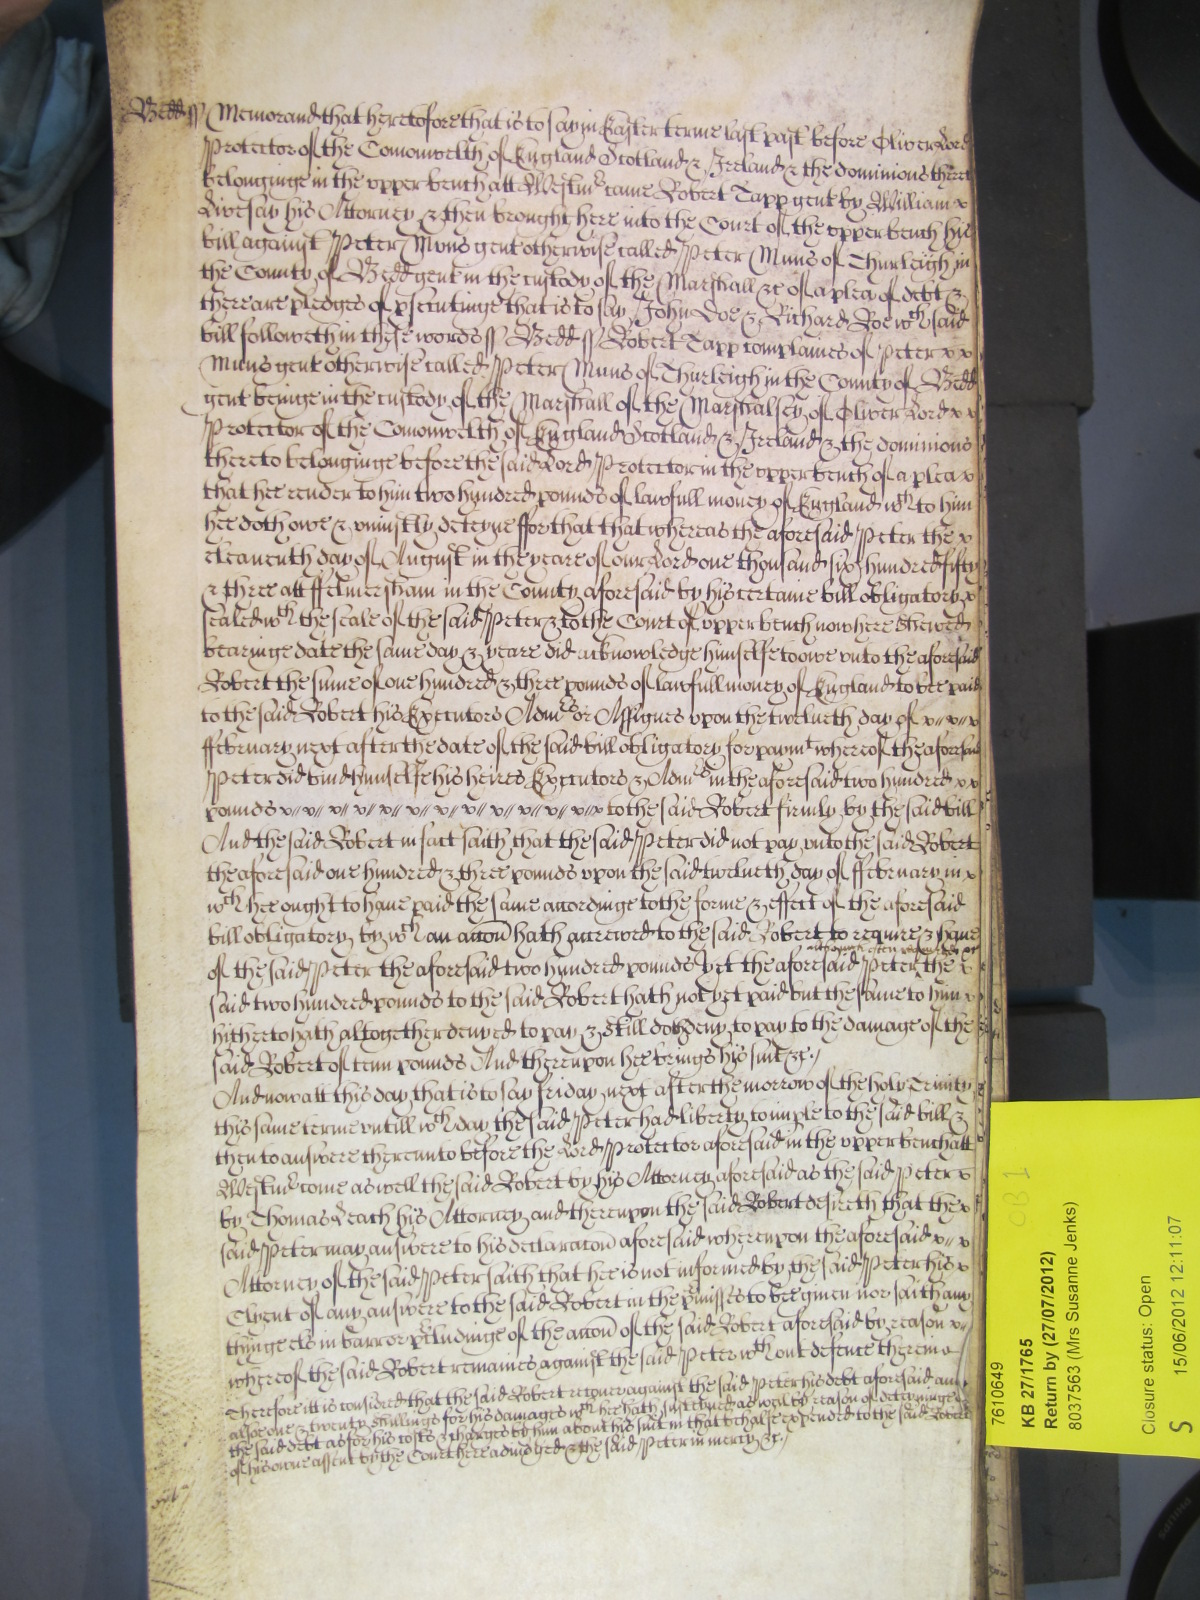 Bedd ss Memorand that heretofore that is to say in Easter terme last past before Oliver Lord
Protector of the Comonwelth of England Scotland & Ireland & the dominions thereto
belonginge in the upper bench att Westmr came Robert Tapp gent by William x
Livesay his Attorney & then brought here into the Court of the upper bench his
bill against Peter Muns gent otherwise called Peter Muns of Thurleigh in
the County of Bedd gent in the custody of the Marshall &c of a plea of debt &
there are pledges of psecutinge that is to say John Doe & Richard Roe wch said
bill followeth in these words ss Bedd ss Robert Tapp complaines of Peter x x
Muns gent otherwise called Peter Muns of Thurleigh in the County of Bedd
gent beinge in the custody of the Marshall of the Marshalsey of Oliver Lord x x
Protector of the Comonwelth of England Scotland & Ireland & the dominions
thereto belonginge before the said Lord Protector in the upper bench of a plea x
that hee render to him two hundred pounds of lawfull money of England wch to him
hee doth owe & uniustly deteyne ffor that that whereas the aforesaid Peter the x
eleaventh day of August in the yeare of our Lord one thousand six hundred fifty
& three att ffelmersham in the County aforesaid by his certaine bill obligatory x
sealed wth the seale of the said Peter & to the Court of upper bench now here shewed
bearinge date the same day & yeare did acknowledge himselfe to owe unto the aforesaid
Robert the sume of one hundred & three pounds of lawfull money of England to bee paid
to the said Robert his Executors Admrs or Assignes upon the twelueth day of x// x// x
ffebruary next after the date of the said bill obligatory for paymt whereof the aforesaid
Peter did bind himselfe his heires Executors & Admrs in the aforesaid two hundred x x
pounds x// x// x// x// x// x// x// x// x// x// x// x to the said Robert firmly by the said bill
And the said Robert in fact saith that the said Peter did not pay unto the said Robert
the aforesaid one hundred & three pounds upon the said twelueth day of ffebruary in x
wch hee ought to haue paid the same accordinge to the forme & effect of the aforesaid
bill obligatory by wch an accon hath accrewed to the said Robert to require & haue
although often requested &c
of the said Peter the aforesaid two hundred pounds yet the aforesaid Peter the x
said two hundred pounds to the said Robert hath not yet paid but the same to him x
hitherto hath altogether denyed to pay & still doth deny to pay to the damage of the
said Robert of tenn pounds And thereupon hee brings his suit &c
And now att this day that is to say friday next after the morrow of the holy Trinity
this same terme untill wch day the said Peter had liberty to imple to the said bill &
then to answere thereunto before the Lord Protector aforesaid in the upper bench att
Westmr come as well the said Robert by his Attorney aforesaid as the said Peter x
by Thomas Leach his Attorney and thereupon the said Robert desireth that the x
said Peter may answere to his declaracon aforesaid whereupon the aforesaid x// x
Attorney of the said Peter saith that hee is not informed by the said Peter his x
Clyent of any answere to the said Robert in the pmisses to bee giuen nor saith any
thinge els in barr or pcludinge of the accon of the said Robert aforesaid by reason x//
whereof the said Robert remaines against the said Peter wthout defence therein
Therefore itt is considered that the said Robert recouer against the said Peter his debt aforesaid and
alsoe one & twenty shillings for his damages wch hee hath susteyned as well by reason of deteyninge
the said debt as for his costs & charges by him about his suit in that behalfe expended to the said Robert
of his owne assent by the Court here adiudged & the said Peter in mercy &c
7610649
KB 27/1765
Return by (27/07/2012)
8037563 (Mrs Susanne Jenks)
Closure status: Open
15/06/2012 12:11:07
S
CB 1